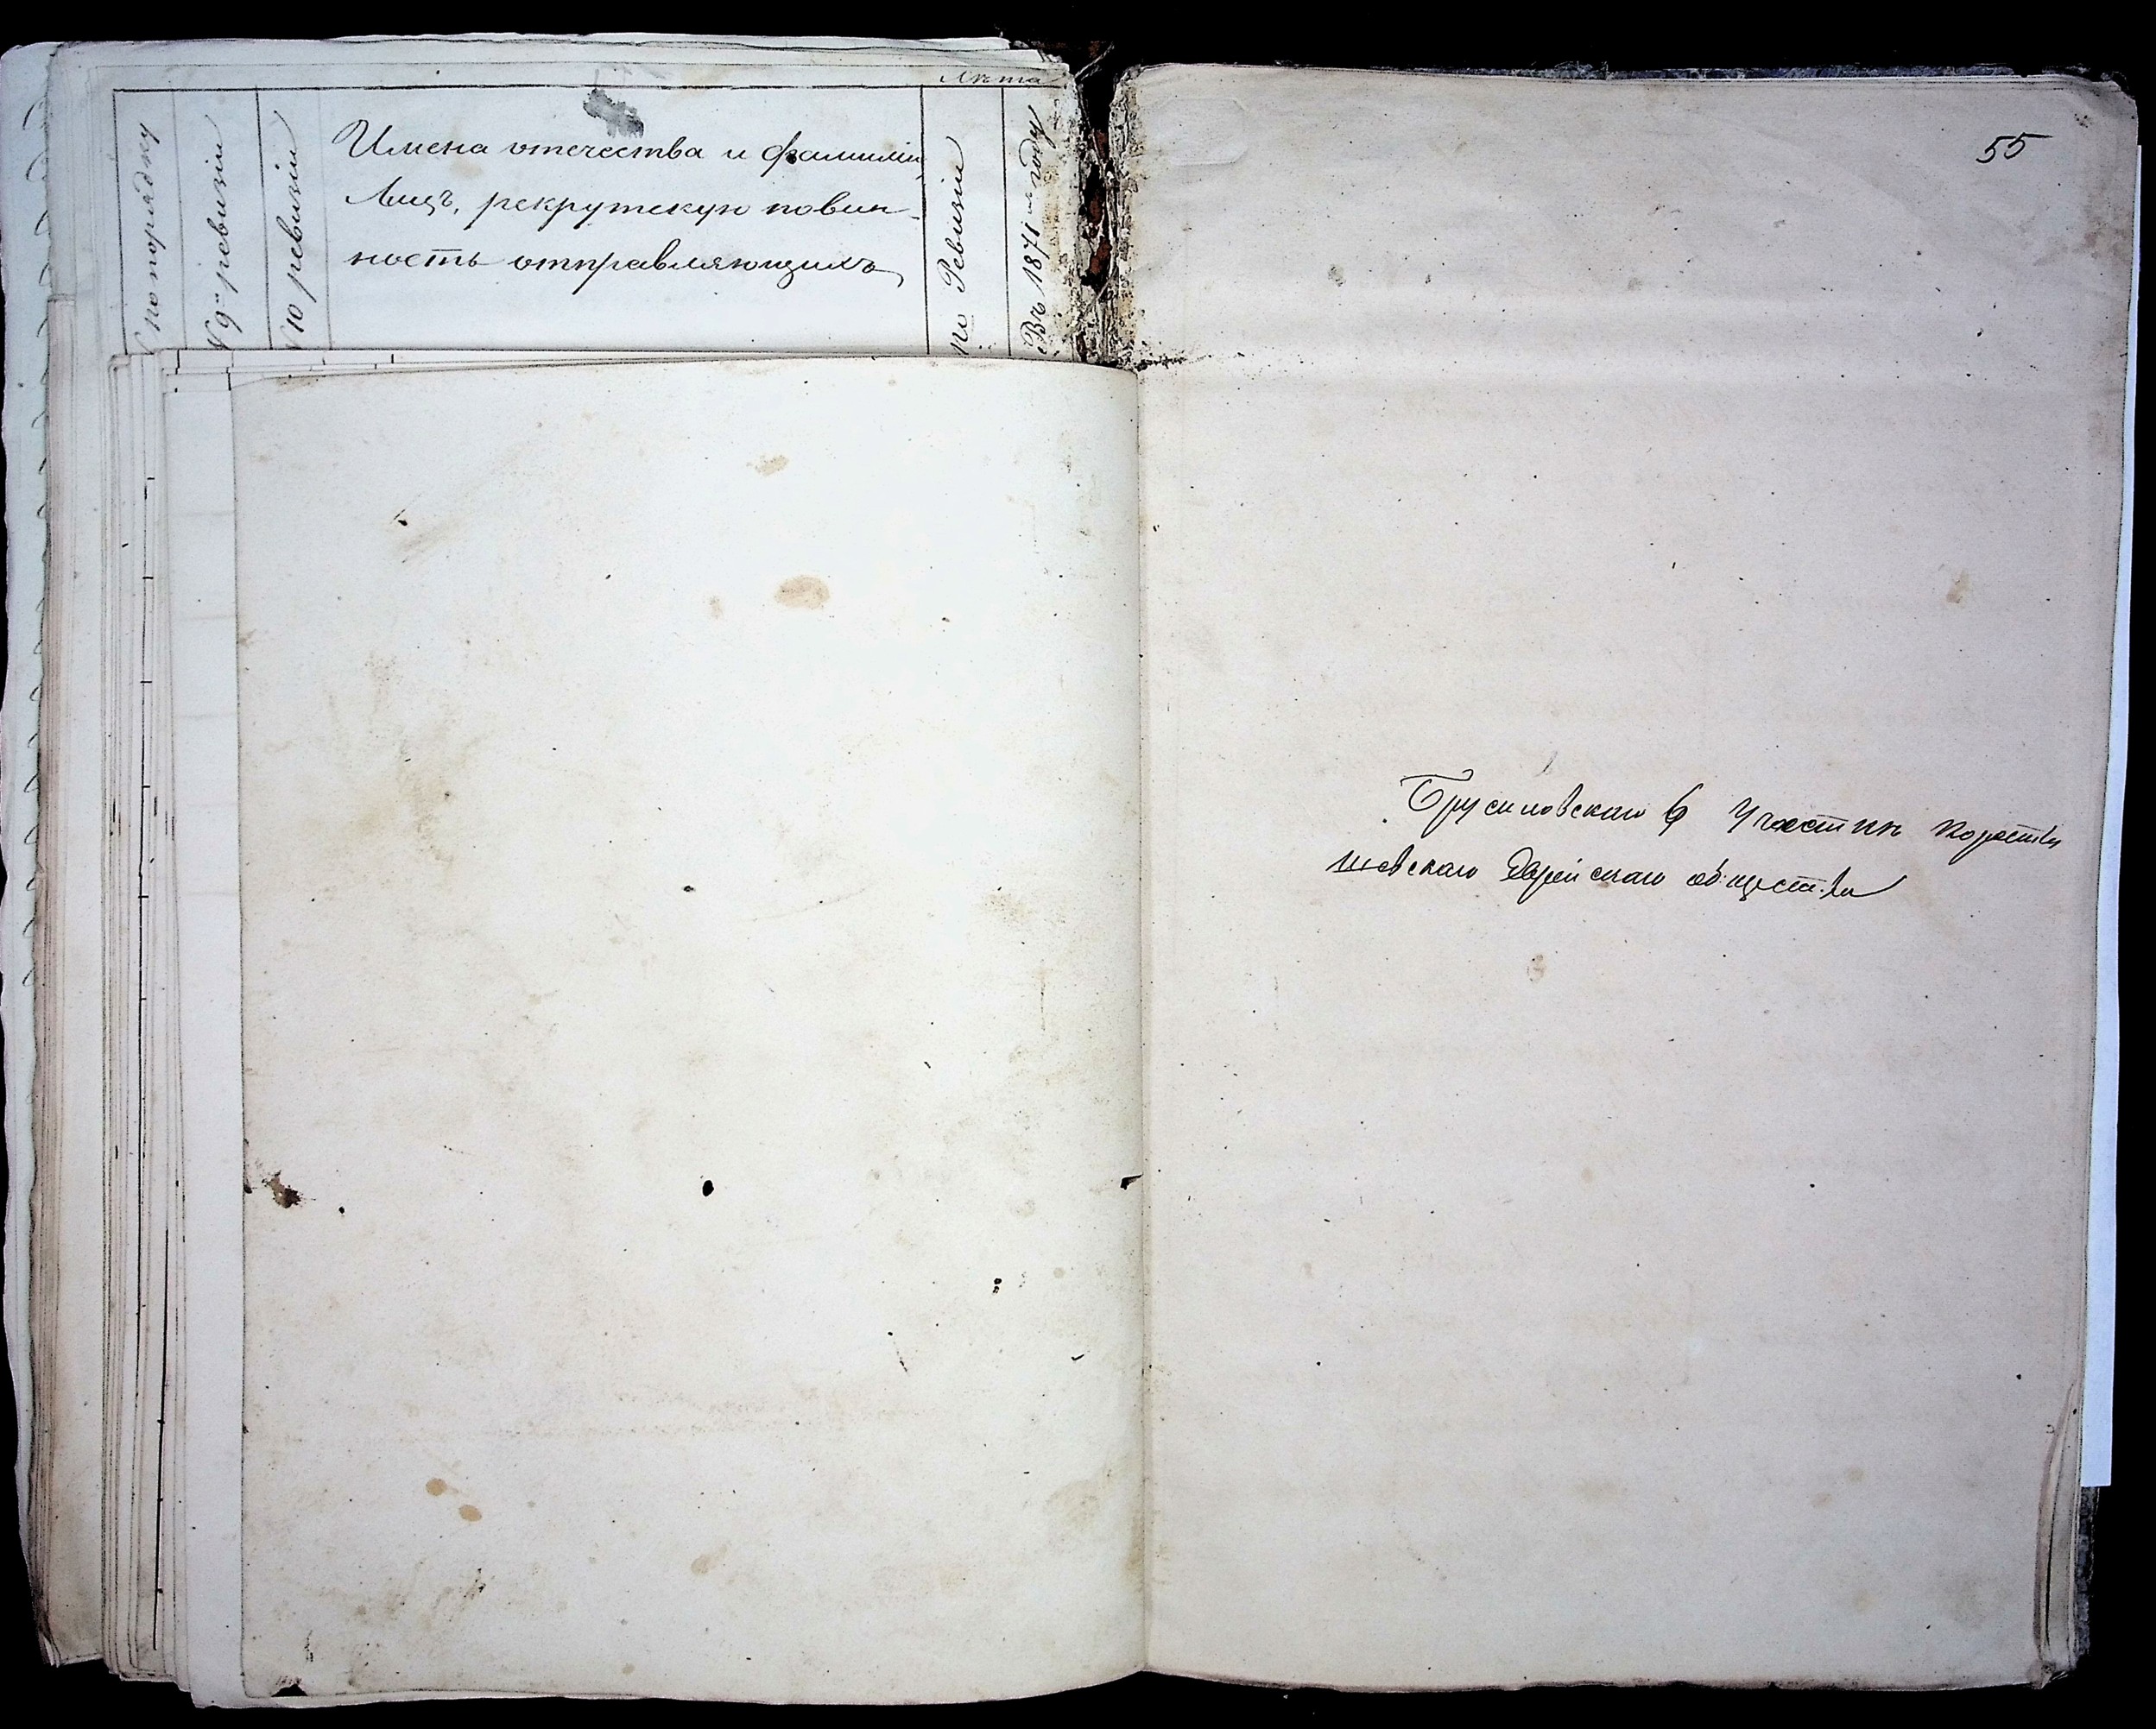 Лѣта
№ по порядку
№ 9й ревизіи
№ 10 ревизіи
Имена отечества и фамиліи
Лицъ, рекрутскую повин-
ность отправляющихъ
по Ревизіи
Въ 1871 м году
55
Брусиловскаго 6 Участка Коросты
шевскаго Еврейскаго общества